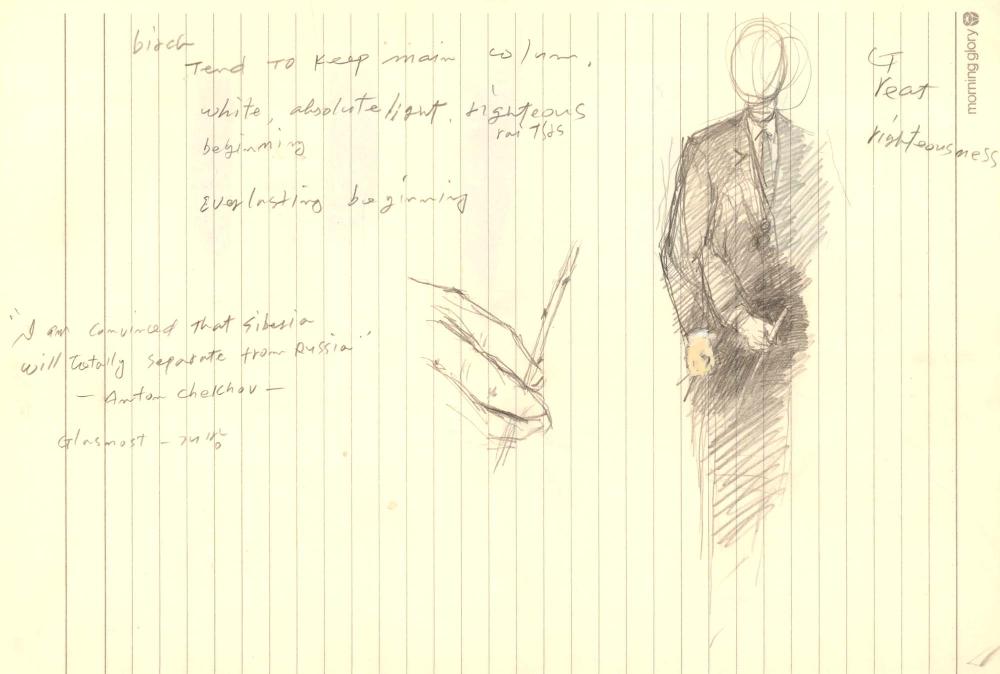 birch
Tend To keep main column.
white, absolute light, righteous
beginning
Everlasting beginning
"I am convinced that Siberia
will totally separate from Russia"
- Anton Chekhov -
Glasmost - 개방
Great
righteousness
morning glory